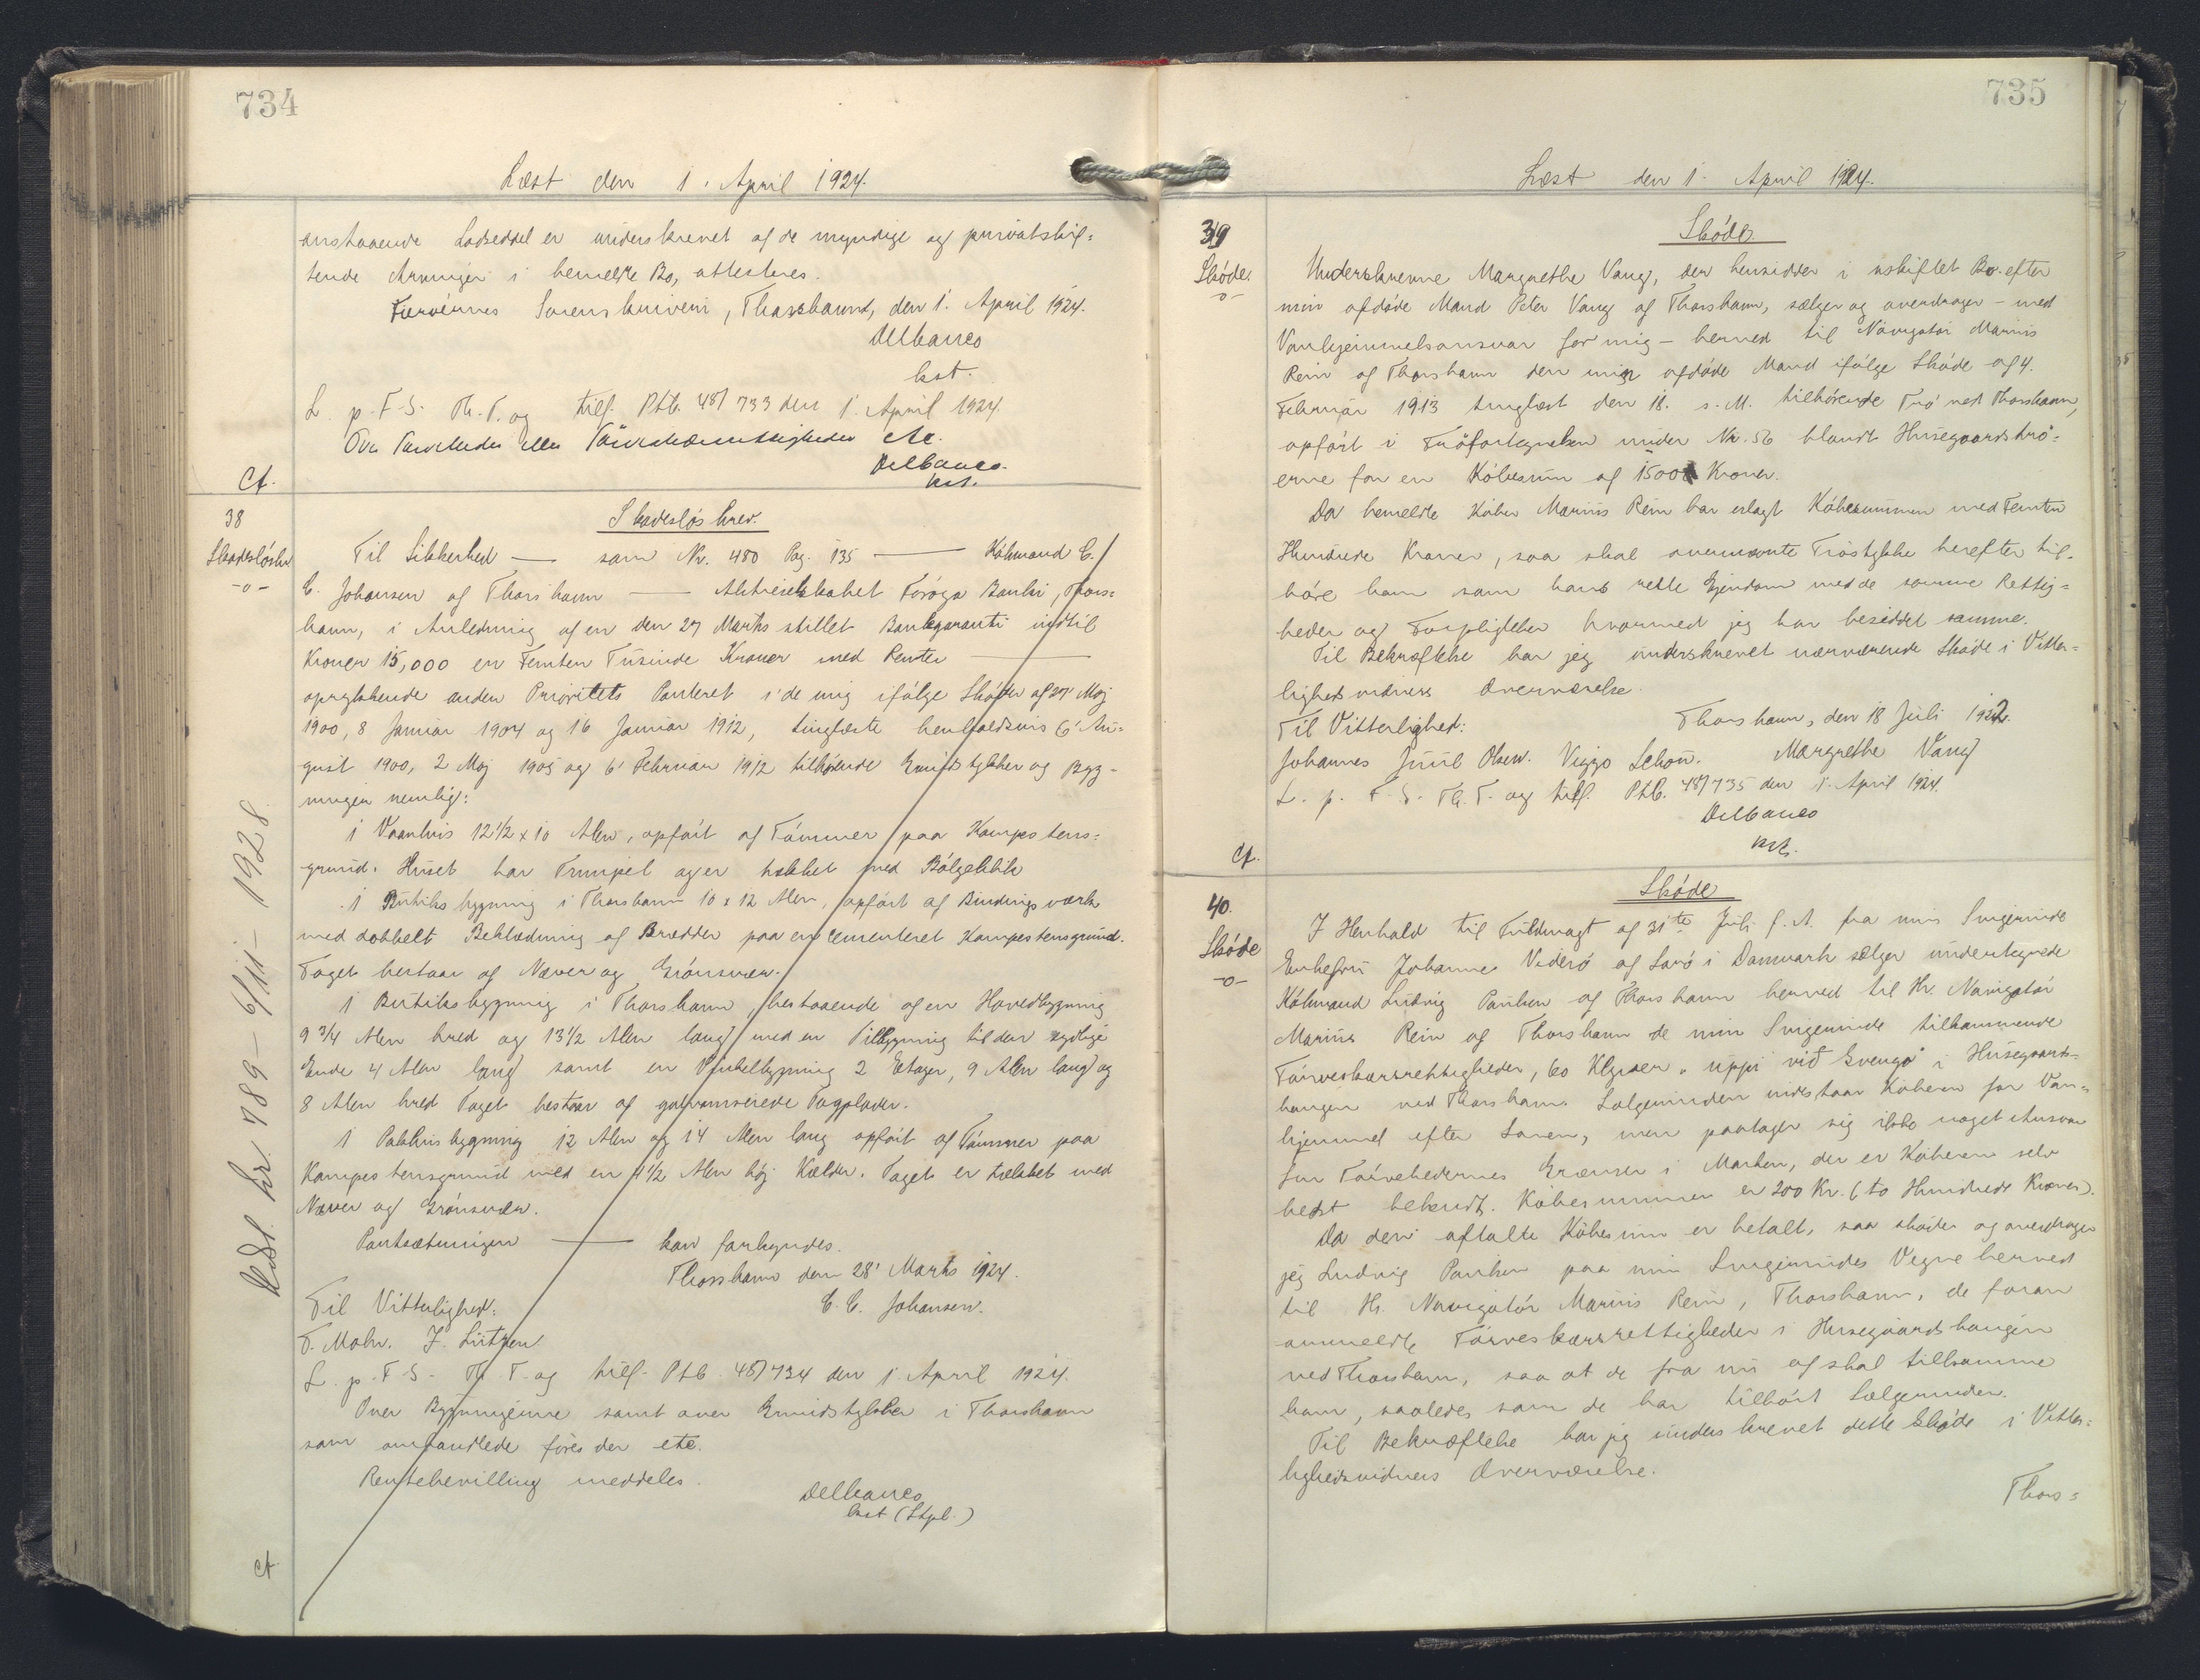 734
Læst den 1. April 1924.
anstaaende Lodseddel er underskrevet af de myndige og privatskif=
tende Arvinger i bemeldte Bo, attesteres.
Færøernes Sorenskriveri, Thorshavn, den 1. April 1924.
Delbanco
kst.
L. p. F. S. Th. T. og tilf. Ptb. 48/733 den 1. April 1924.
etc.
Delbanco.
kst.
Cf.
38
Skadesløsbr
-o-
Skadesløsbrev.
Til Sikkerhed — som Nr. 480 Pag. 135 — Købmand C.
C. Johansen af Thorshavn — Aktieselskabet Føroya Banki, Thors=
havn, i Anledning af en den 27 Marts stillet Bankgaranti indtil
Kroner 15,000 er Femten Tusinde Kroner med Renter —
oprykkende anden Prioritets Panteret i de mig ifølge Skøder af 27' Maj
1900, 8 Januar 1904 og 16 Januar 1912, tinglæste henholdsvis 6' Au=
gust 1900, 2 Maj 1905 og 6' Februar 1912 tilhørende Grundstykker og Byg-
ninger nemlig:
1 Vaanhus 12½ x 10 Alen, opført af Tømmer paa Kampestens=
grund. Huset har Trempel og er tækket med Bølgeblik
1 Butiksbygning i Thorshavn 10 x 12 Alen, opført af Bindingsværk
med dobbelt Beklædning af Brædder paa en cementeret Kampestensgrund.
Taget bestaar af Næver og Grønsvær.
1 Butiksbygning i Thorshavn, bestaaende af en Hovedbygning
9 3/4 Alen bred og 13½ Alen lang med en Tilbygning til den sydlige
Ende 4 Alen lang samt en Vinkelbygning 2 Etager, 9 Alen lang og
8 Alen bred Taget bestaar af galvaniserede Tagplader.
1 Pakhusbygning 12 Alen og 14 Alen lang opført af Tømmer paa
Kampestensgrund med en 4½ Alen høj Kælder. Taget er tækket med
Næver og Grønsvær.
Pantsætningen — kan forkyndes.
Thorshavn den 28' Marts 1924.
Til Vitterlighed: C. C. Johansen.
F. Mohr. J. Lützen.
L. p. F. S. Th. T. og tilf. Ptb. 48/734 den 1. April 1924.
Over Bygningerne samt over Grundstykker i Thorshavn
som omhandlede føres der etc.
Rentebevilling meddeles.
Delbanco
kst (Stpl.)
Cf.
Udsl. Nr. 789 - 6/11 - 1928.
735
Læst den 1. April 1924.
39
Skøde.
-o-
Skøde.
Underskrevne Margrethe Vang, der hensidder i uskiftet Bo efter
min afdøde Mand Peter Vang af Thorshavn, sælger og overdrager - med
Vanhjemmelsansvar for mig - herved til Navigatør Marius
Rein af Thorshavn den min afdøde Mand ifølge Skøde af 4.
Februar 1913 tinglæst den 18. s. M. tilhørende Trø ved Thorshavn,
opført i Trøfortegnelsen under Nr. 56 blandt Husegaardstrø=
erne for en Købesum af 1500 Kroner.
Da bemeldte Køber Marius Rein har erlagt Købesummen med Femten
Hundrede Kroner, saa skal ovennævnte Trøstykke herefter til=
høre ham som hans rette Ejendom med de samme Rettig=
heder og Forpligtelser hvormed jeg har besiddet samme.
Til Bekræftelse har jeg underskrevet nærværende Skøde i Vitter=
lighedsvidners Overværelse.
Til Vitterlighed: Thorshavn, den 18 Juli 1922.
Johannes Juul Olsen. Viggo Schou. Margrethe Vang
L. p. F. S. Th. T. og tilf. Ptb. 48/735 den 1. April 1924.
Delbanco
kst.
Cf.
40.
Skøde
-o-
Skøde
I Henhold til Fuldmagt af 31te Juli f. A. fra min Svigerinde
Enkefru Johanne Viderø af Sorø i Danmark sælger undertegnede
Købmand Ludvig Poulsen af Thorshavn herved til Hr. Navigatør
Marius Rein af Thorshavn de min Svigerinde tilkommende
Tørveskærsrettigheder, 60 Klyver „uppi við Svenga" i Husegaards-
haugen ved Thorshavn. Sælgerinden indestaar Køberen for Van=
hjemmel efter Loven, men paatager sig ikke noget Ansvar
for Tørvehedernes Grænser i Marken, der er Køberen selv
bedst bekendt. Købesummen er 200 Kr. (to Hundrede Kroner).
Da den aftalte Købesum er betalt, saa skøder og overdrager
jeg Ludvig Poulsen paa min Svigerindes Vegne herved
til Hr. Navigatør Marius Rein, Thorshavn, de foran
anmeldte Tørveskærsrettigheder i Husegaardshaugen
ved Thorshavn, saa at de fra nu af skal tilkomme
ham, saaledes som de har tilhørt Sælgerinden.
Til Bekræftelse har jeg underskrevet dette Skøde i Vitter=
lighedsvidners Overværelse.
Thors=